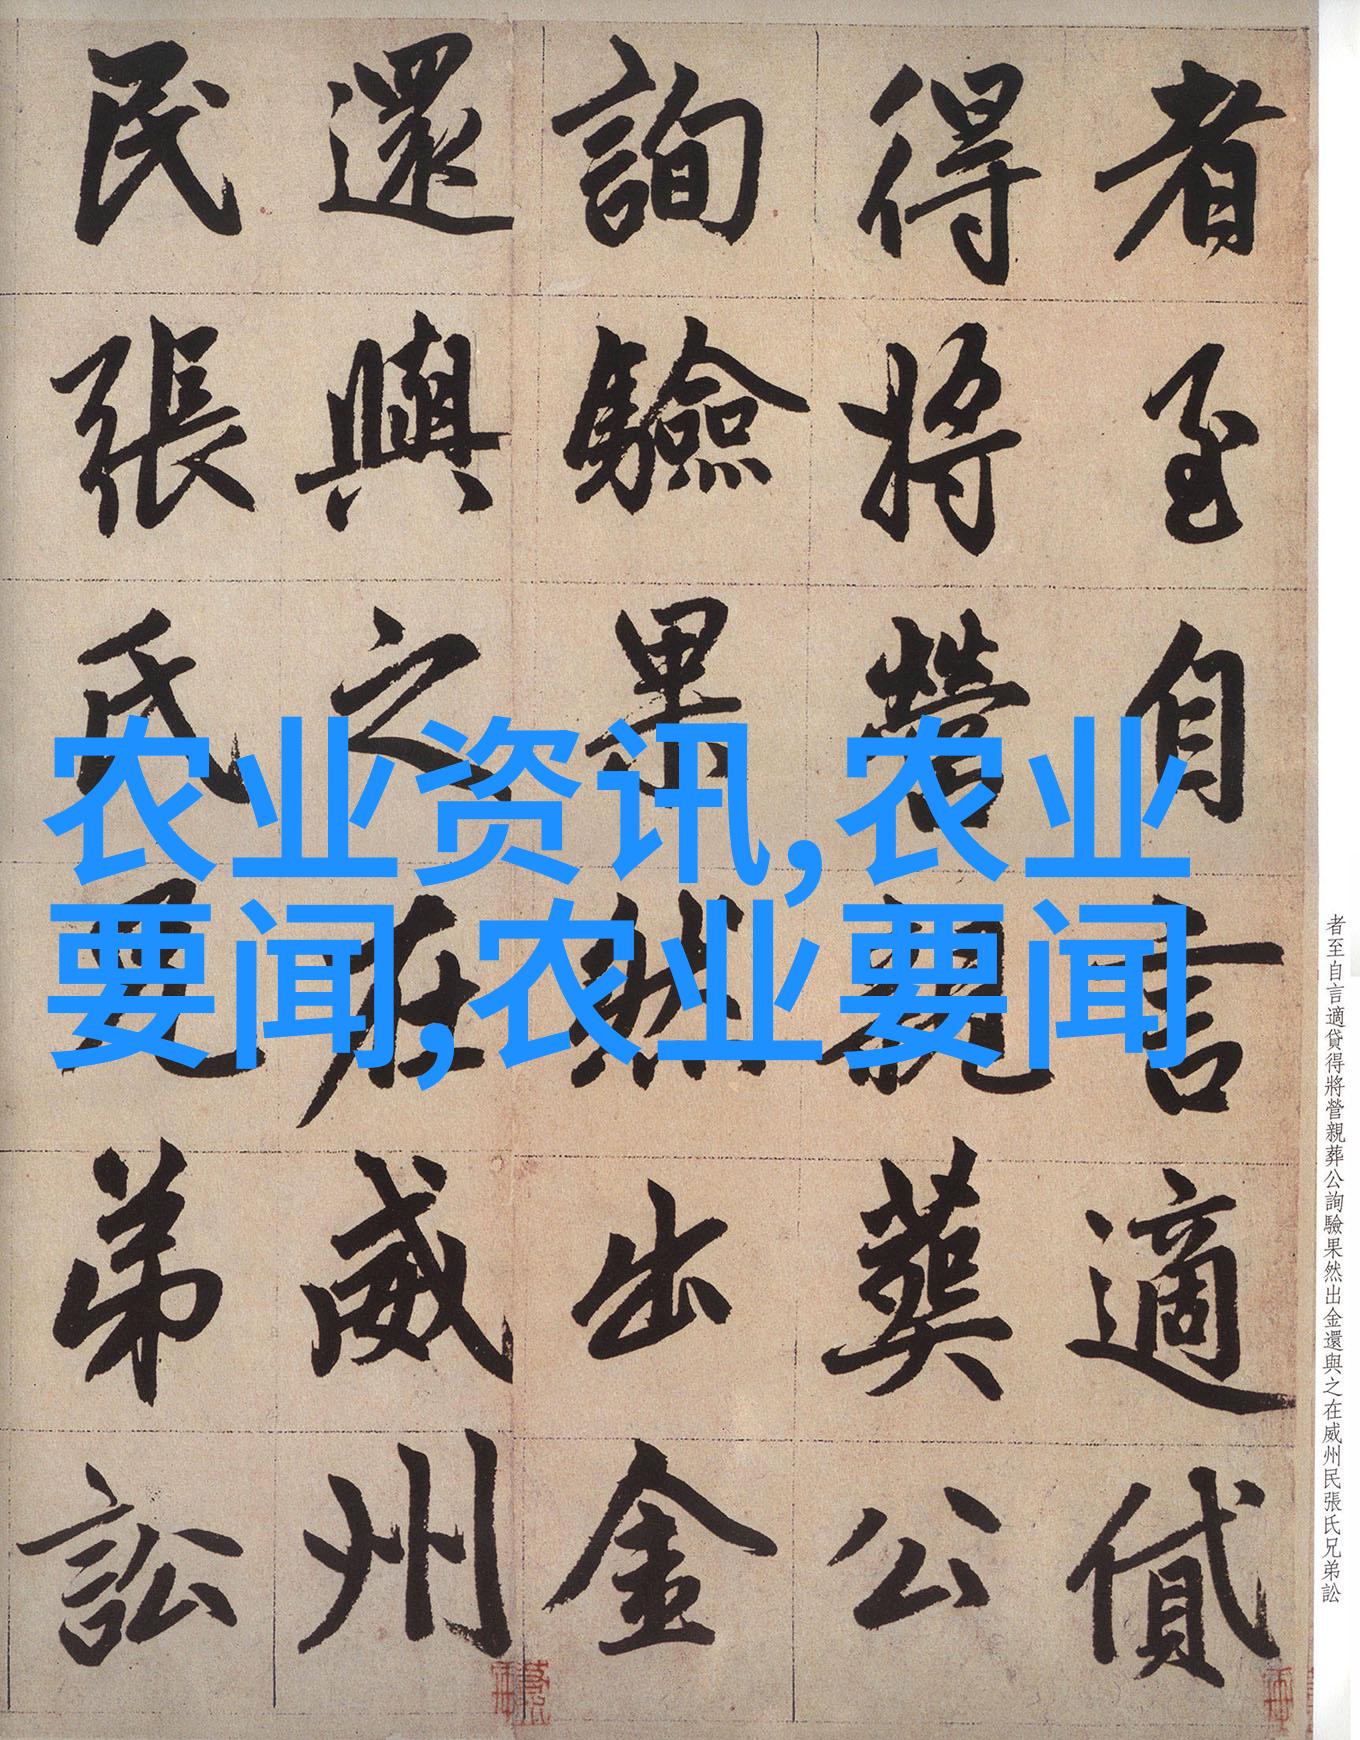 者至自言適貸
得將營親葬公
詢驗果然出金
還與之在威州
民張氏兄弟訟
农业资讯,农业
要闻,农业要闻
者至自言適貸得將營親葬公詢驗果然出金還與之在威州民張氏兄弟訟